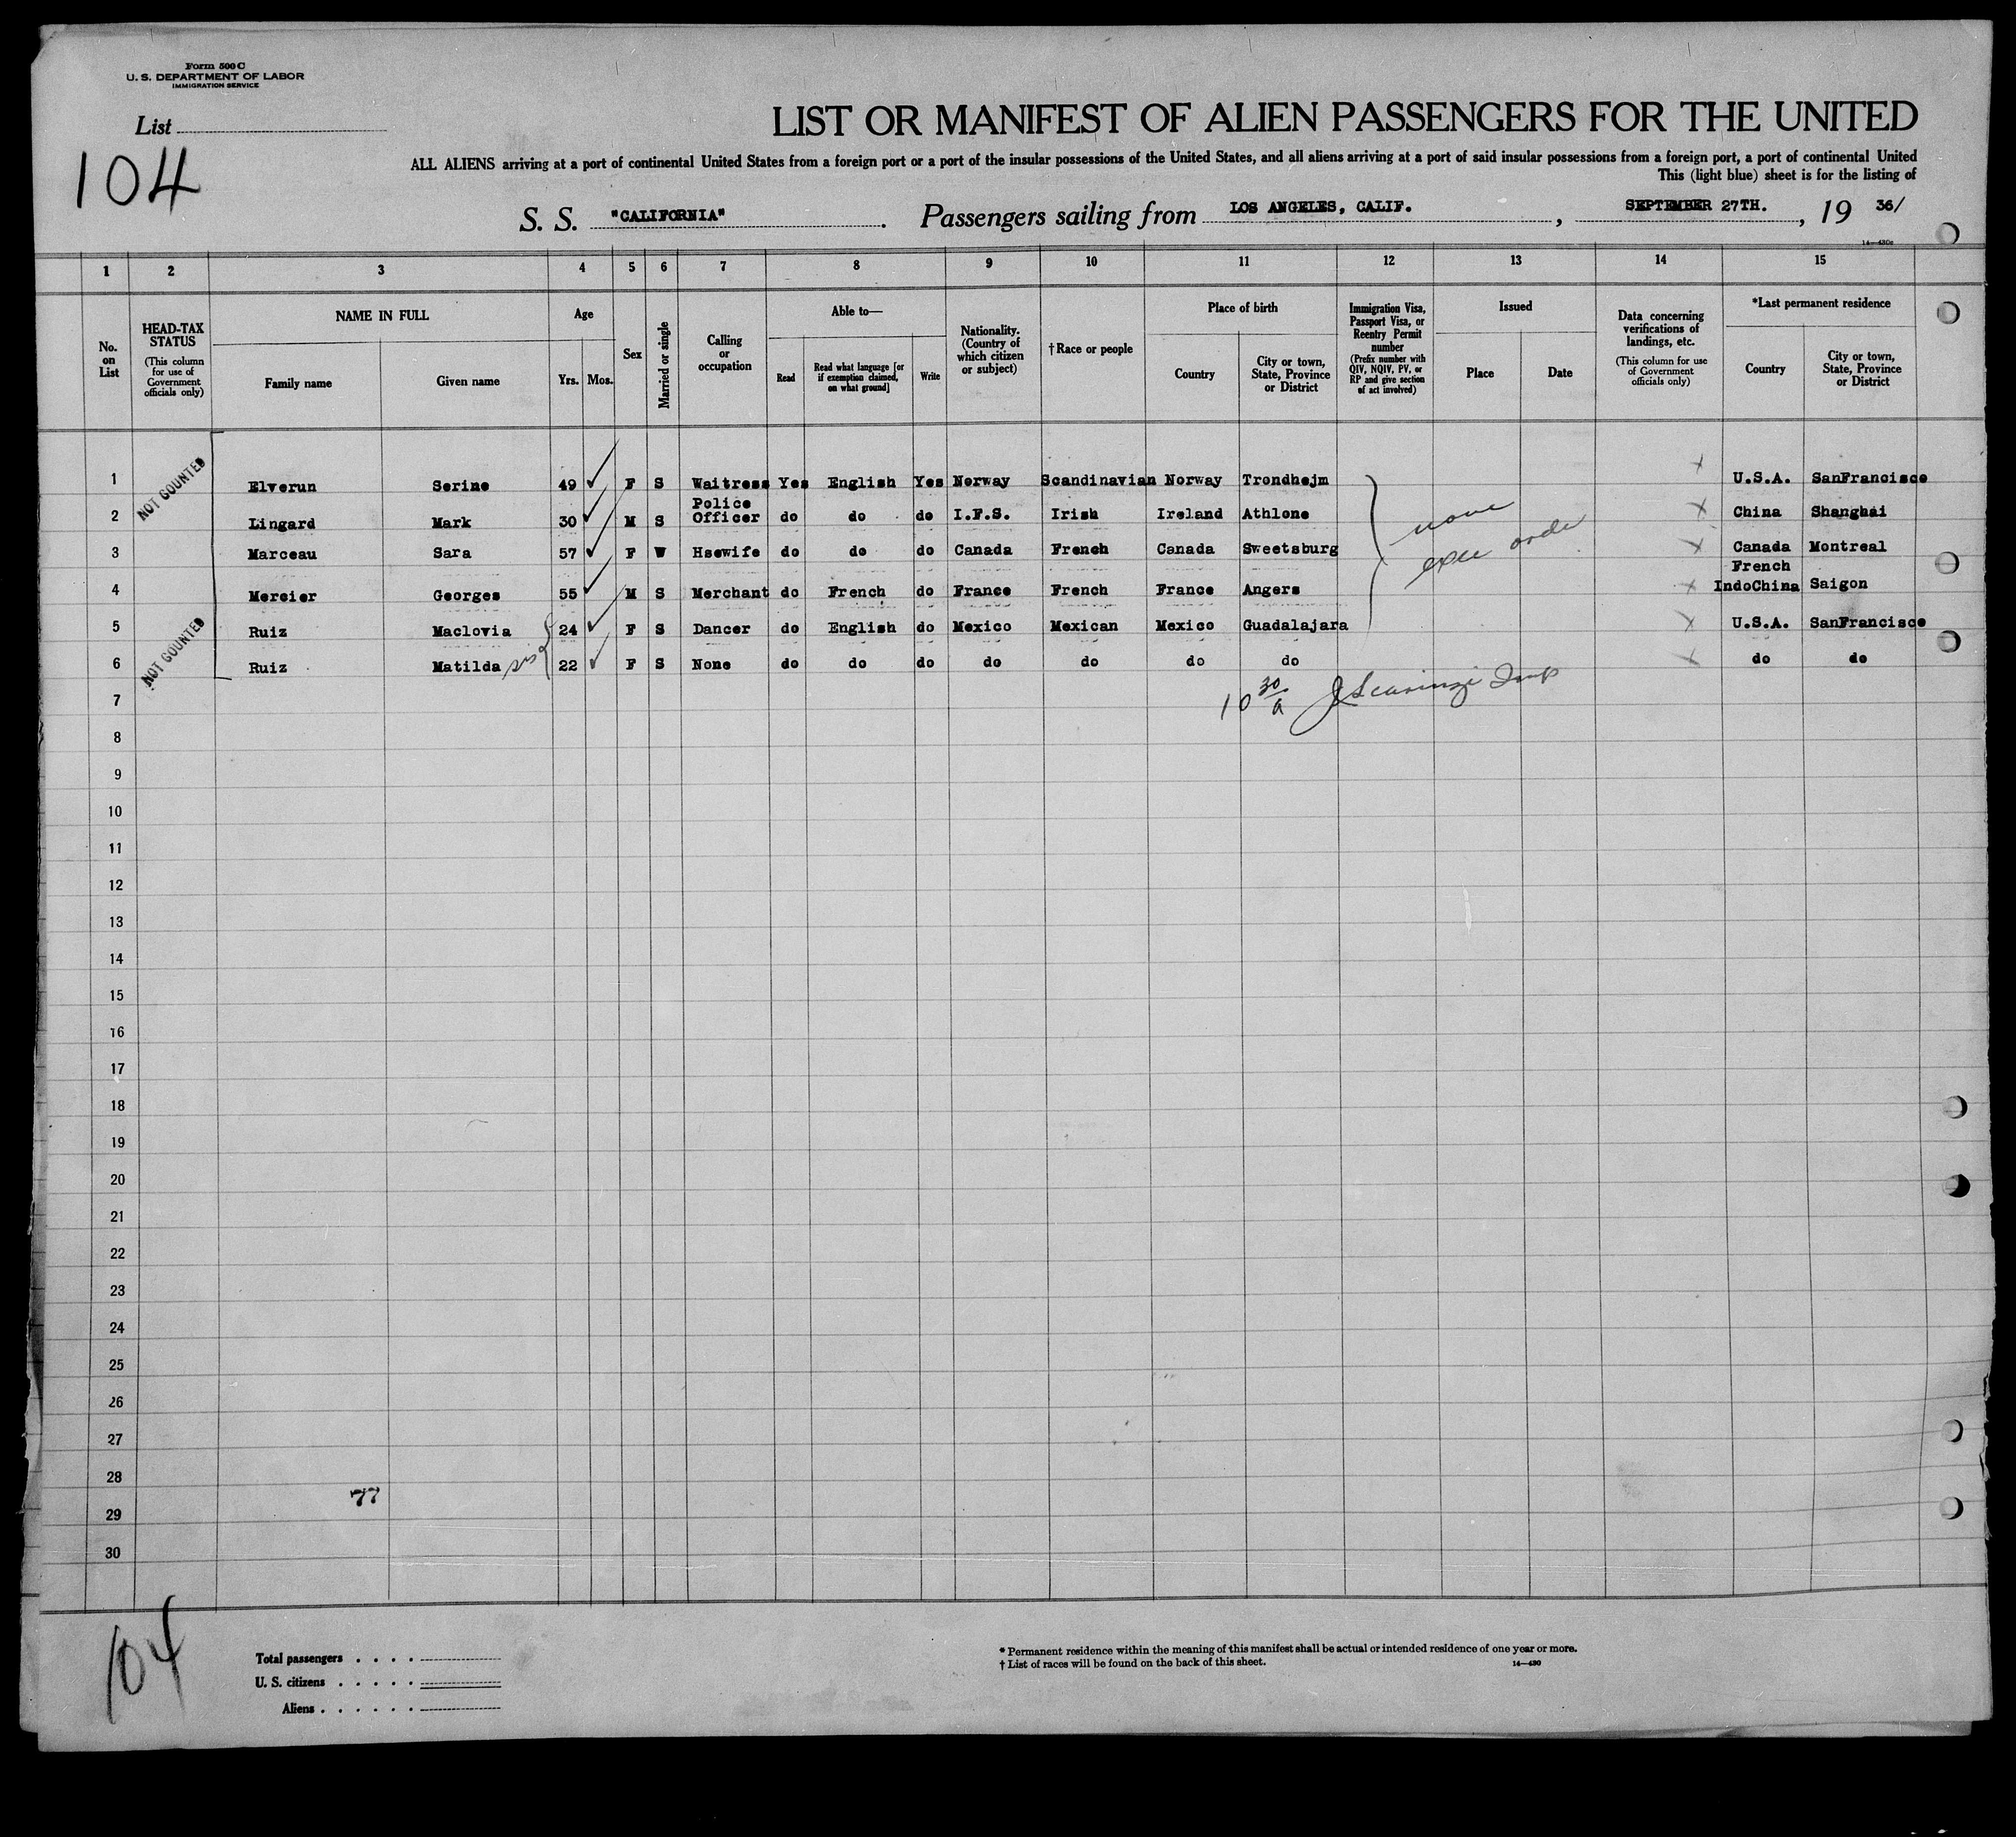 Form 500 C
U. S. DEPARTMENT OF LABOR
IMMIGRATION SERVICE
List
104
LIST OR MANIFEST OF ALIEN PASSENGERS FOR THE UNITED
ALL ALIENS arriving at a port of continental United States from a foreign port or a port of the insular possessions of the United States, and all aliens arriving at a port of said insular possessions from a foreign port, a port of continental United
This (light blue) sheet is for the listing of
S. S. "CALIFORNIA". Passengers sailing from LOS ANGELES, CALIF., SEPTEMBER 27TH., 19 36/
14—430c
1 2 3 4 5 6 7 8 9 10 11 12 13 14 15
No. on List
HEAD-TAX STATUS
(This column for use of Government officials only)
NAME IN FULL
Family name Given name
Age
Yrs. Mos.
Sex
Married or single
Calling or occupation
Able to—
Read
Read what language [or if exemption claimed, on what ground]
Write
Nationality. (Country of which citizen or subject)
†Race or people
Place of birth
Country
City or town, State, Province or District
Immigration Visa, Passport Visa, or Reentry Permit number
(Prefix number with QIV, NQIV, PV, or RP and give section of act involved)
Issued
Place Date
Data concerning verifications of landings, etc.
(This column for use of Government officials only)
*Last permanent residence
Country
City or town, State, Province or District
NOT COUNTED
1 Elverun Serine 49 F S Waitress Yes English Yes Norway Scandinavian Norway Trondhejm U.S.A. SanFrancisco
2 Lingard Mark 30 M S Police Officer do do do I.F.S. Irish Ireland Athlone none China Shanghai
3 Marceau Sara 57 F W Hsewife do do do Canada French Canada Sweetsburg exec orde Canada Montreal
4 Mercier Georges 55 M S Merchant do French do France French France Angers French IndoChina Saigon
NOT COUNTED
5 Ruiz Maclovia 24 F S Dancer do English do Mexico Mexican Mexico Guadalajara U.S.A. SanFrancisco
6 Ruiz Matilda sis 22 F S None do do do do do do do do do
7 10 30/a Insp
8
9
10
11
12
13
14
15
16
17
18
19
20
21
22
23
24
25
26
27
28
77
29
30
104
Total passengers . . . .
U. S. citizens . . . . .
Aliens . . . . . .
* Permanent residence within the meaning of this manifest shall be actual or intended residence of one year or more.
† List of races will be found on the back of this sheet.
14—430